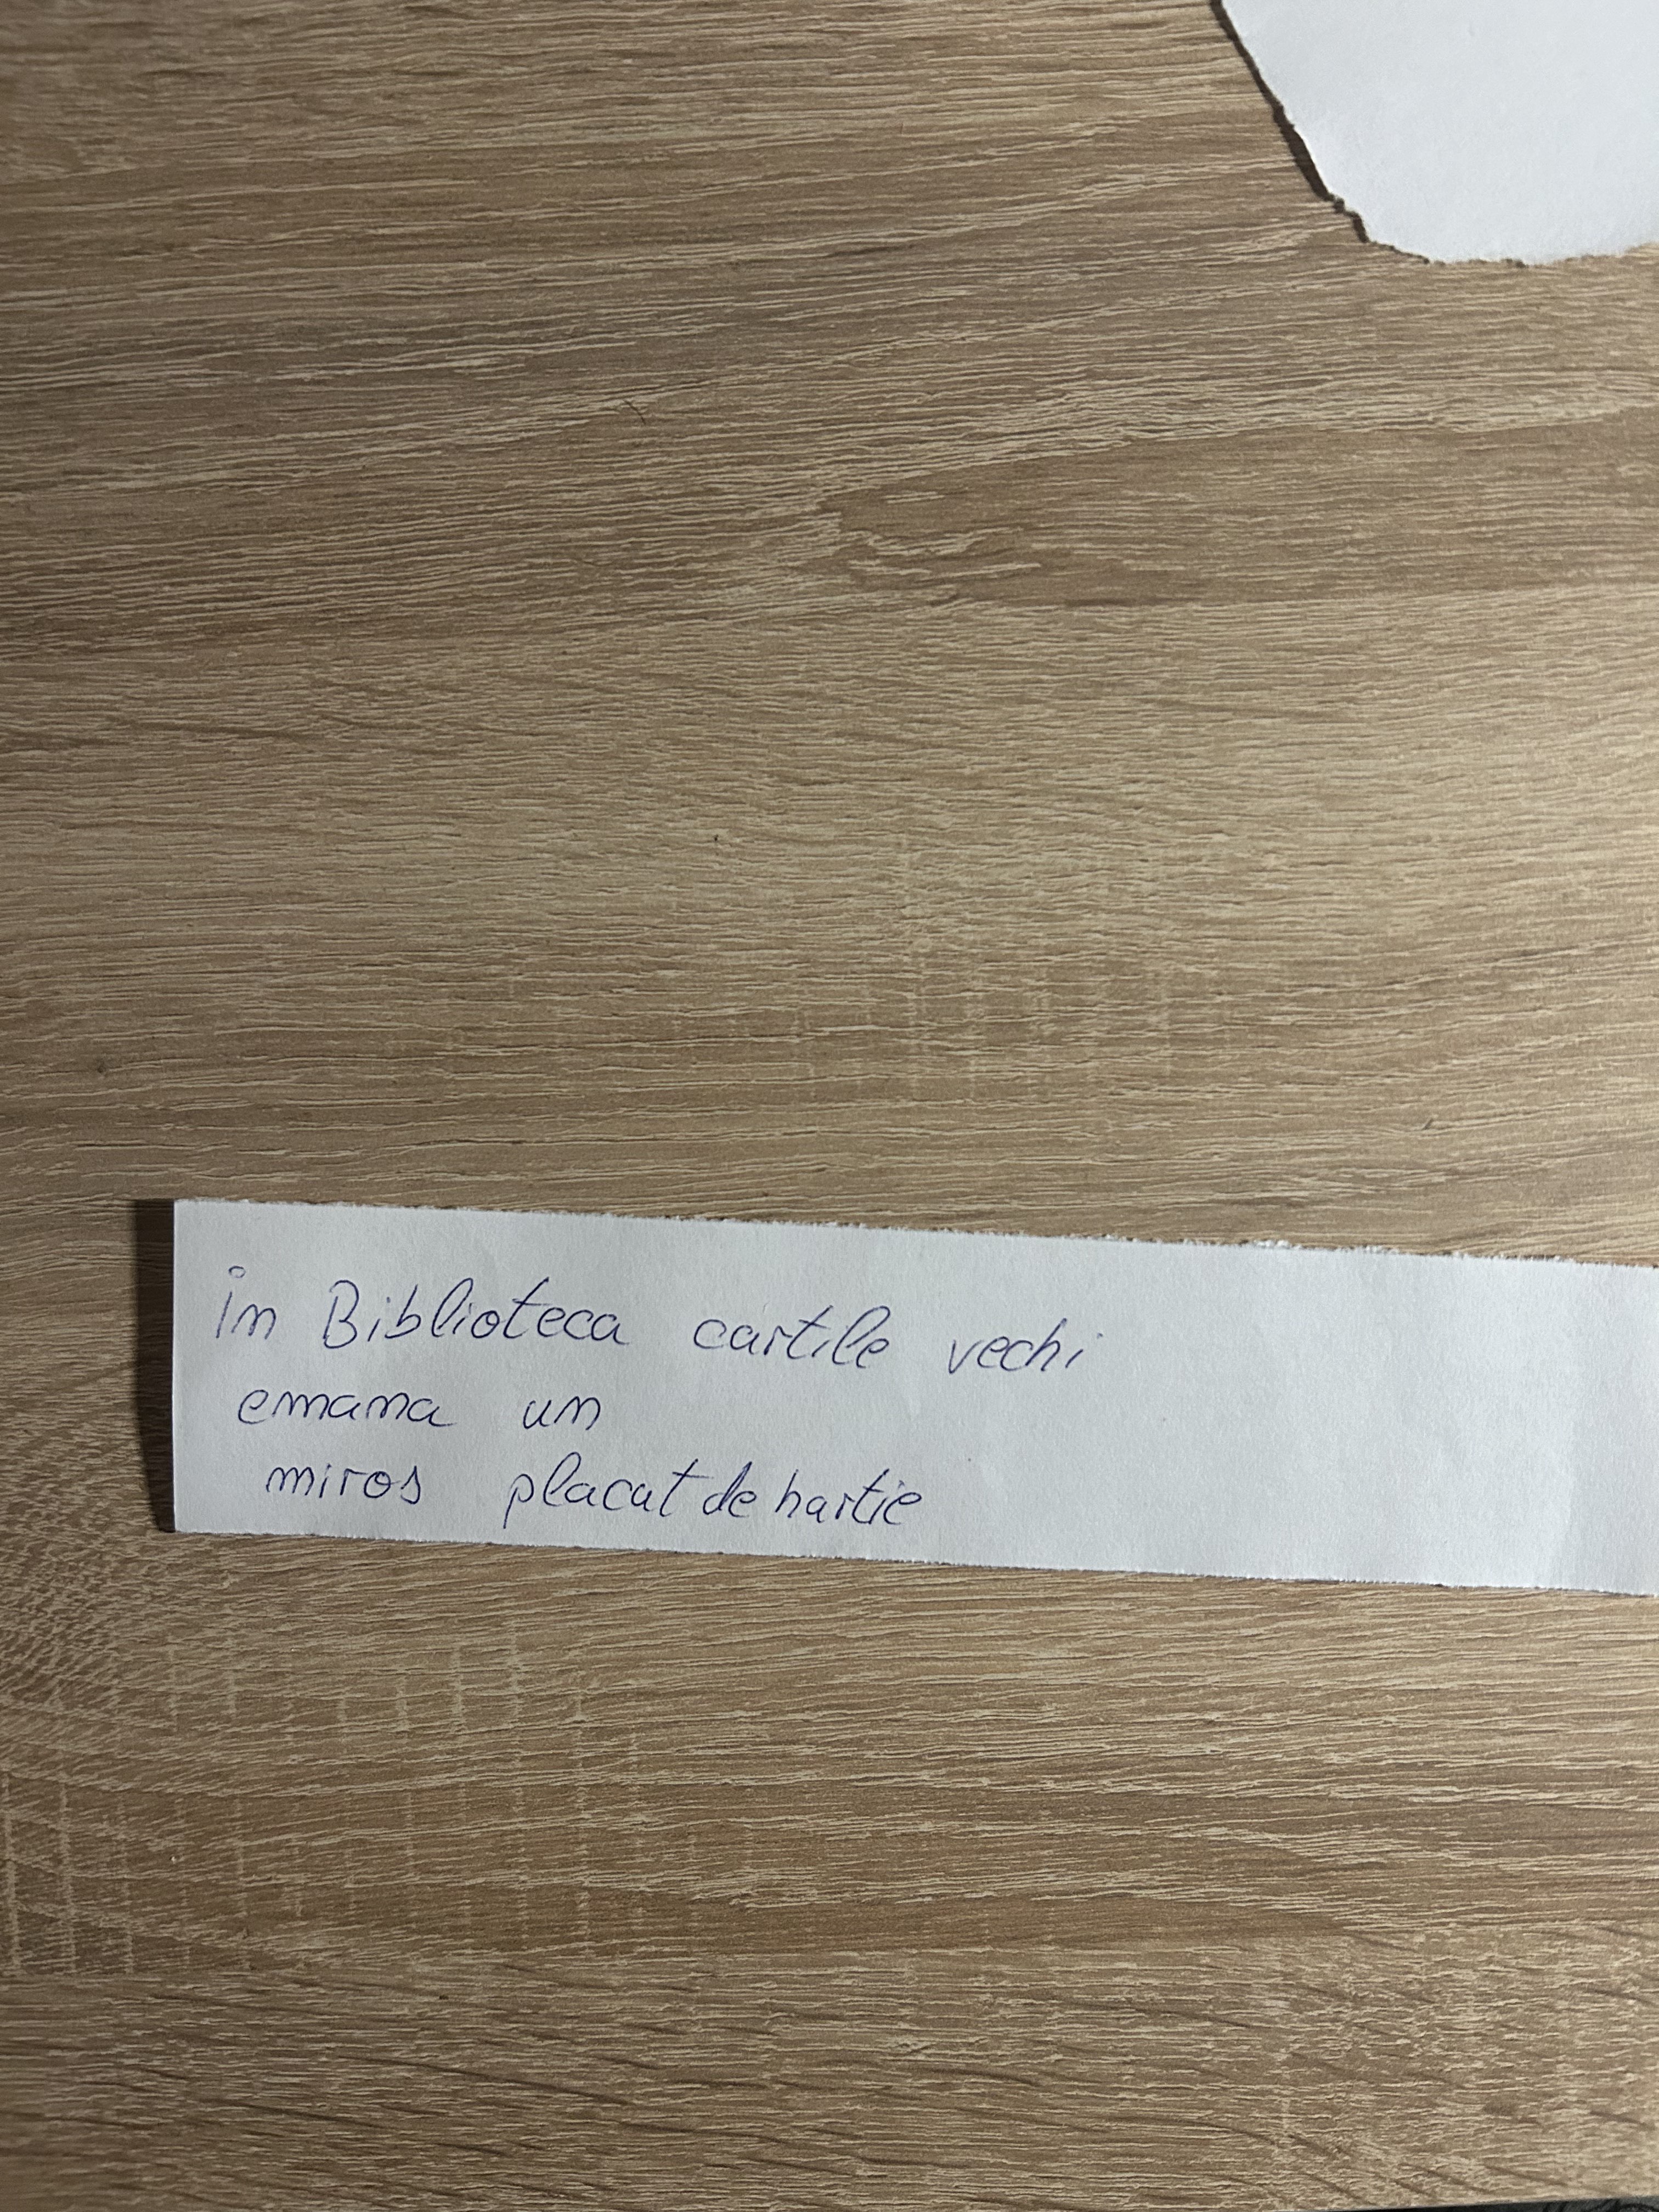 in Biblioteca cartile vechi
emana un
miros placat de hartie